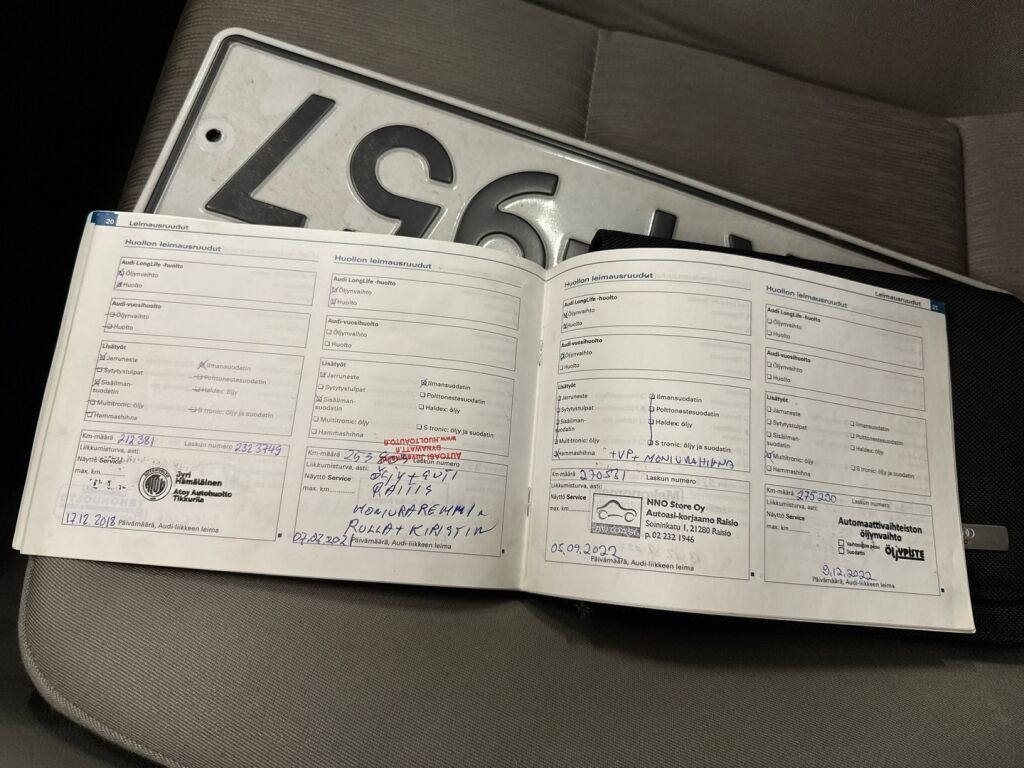 20 Leimausruudut
Huollon leimausruudut
Audi LongLife -huolto
Öljynvaihto
Huolto
Audi-vuosihuolto
Öljynvaihto
Huolto
Lisätyöt
Jarruneste
Sytytystulpat
Sisäilman-
suodatin
Multitronic: öljy
Hammashihna
Ilmansuodatin
Polttonestesuodatin
Haldex: öljy
S tronic: öljy ja suodatin
Km-määrä 212381 Laskun numero 2323749
Liikkumisturva, asti:
Näyttö Service
max. km
Jyri
Hämäläinen
Atoy Autohuolto
Tikkurila
17.12.2018 Päivämäärä, Audi-liikkeen leima
Huollon leimausruudut
Audi LongLife -huolto
Öljynvaihto
Huolto
Audi-vuosihuolto
Öljynvaihto
Huolto
Lisätyöt
Jarruneste
Sytytystulpat
Sisäilman-
suodatin
Multitronic: öljy
Hammashihna
Ilmansuodatin
Polttonestesuodatin
Haldex: öljy
S tronic: öljy ja suodatin
WWW.HUOLTOAUTO.fi
Km-määrä Laskun numero
Liikkumisturva, asti:
Näyttö Service
max. km
MONIURAREMMIN
RULLAT KIRISTIN
Päivämäärä, Audi-liikkeen leima
Huollon leimausruudut
Audi LongLife -huolto
Öljynvaihto
Huolto
Audi-vuosihuolto
Öljynvaihto
Huolto
Lisätyöt
Jarruneste
Sytytystulpat
Sisäilman-
suodatin
Multitronic: öljy
Hammashihna
Ilmansuodatin
Polttonestesuodatin
Haldex: öljy
S tronic: öljy ja suodatin
+VP+ MONIURAHIHNA
Km-määrä 270531 Laskun numero
Liikkumisturva, asti:
Näyttö Service
max. km
NNO Store Oy
Autoasi-korjaamo Raisio
Soininkatu 1, 21280 Raisio
p. 02 232 1946
05.09.2022
Päivämäärä, Audi-liikkeen leima
Leimausruudut 21
Huollon leimausruudut
Audi LongLife -huolto
Öljynvaihto
Huolto
Audi-vuosihuolto
Öljynvaihto
Huolto
Lisätyöt
Jarruneste
Sytytystulpat
Sisäilman-
suodatin
Multitronic: öljy
Hammashihna
Ilmansuodatin
Polttonestesuodatin
Haldex: öljy
S tronic: öljy ja suodatin
Km-määrä 275290 Laskun numero
Liikkumisturva, asti:
Näyttö Service
max. km
Automaattivaihteiston
öljynvaihto
Suodatin
ÖLJYPISTE
9.12.2022
Päivämäärä, Audi-liikkeen leima